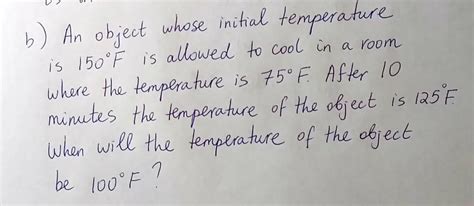 b) An object whose initial temperature
is 150°F is allowed to cool in a room
where the temperature is 75°F. After 10
minutes the temperature of the object is 125°F.
When will the temperature of the object
be 100°F ?